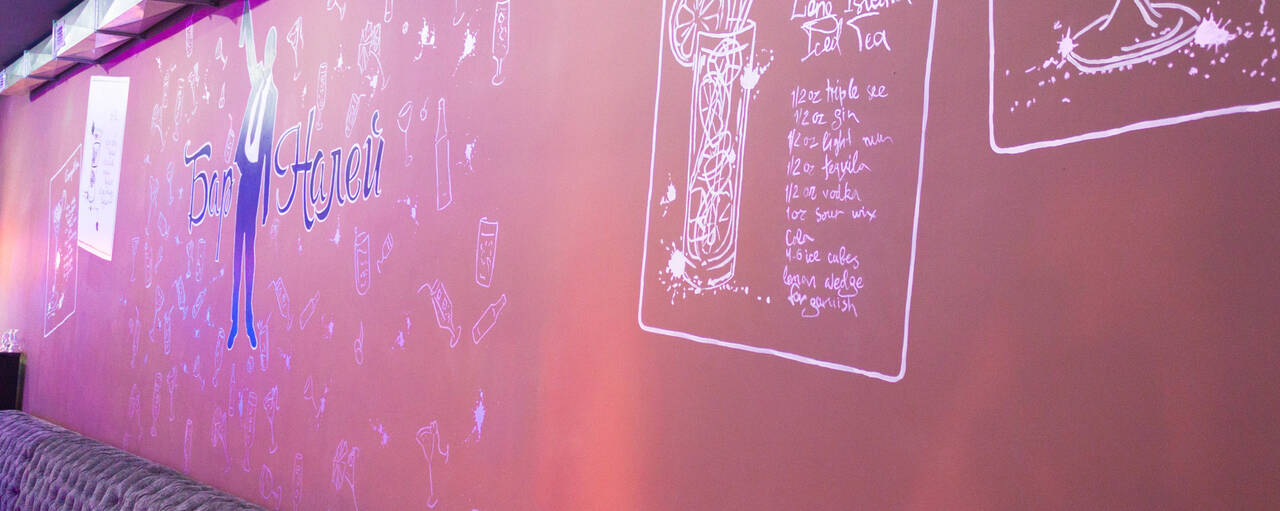 Бар Налей
Long Island
Iced Tea
1/2 oz triple sec
1/2 oz gin
1/2 oz light rum
1/2 oz tequila
1/2 oz vodka
1 oz sour mix
Cola
4-6 ice cubes
lemon wedge
for garnish